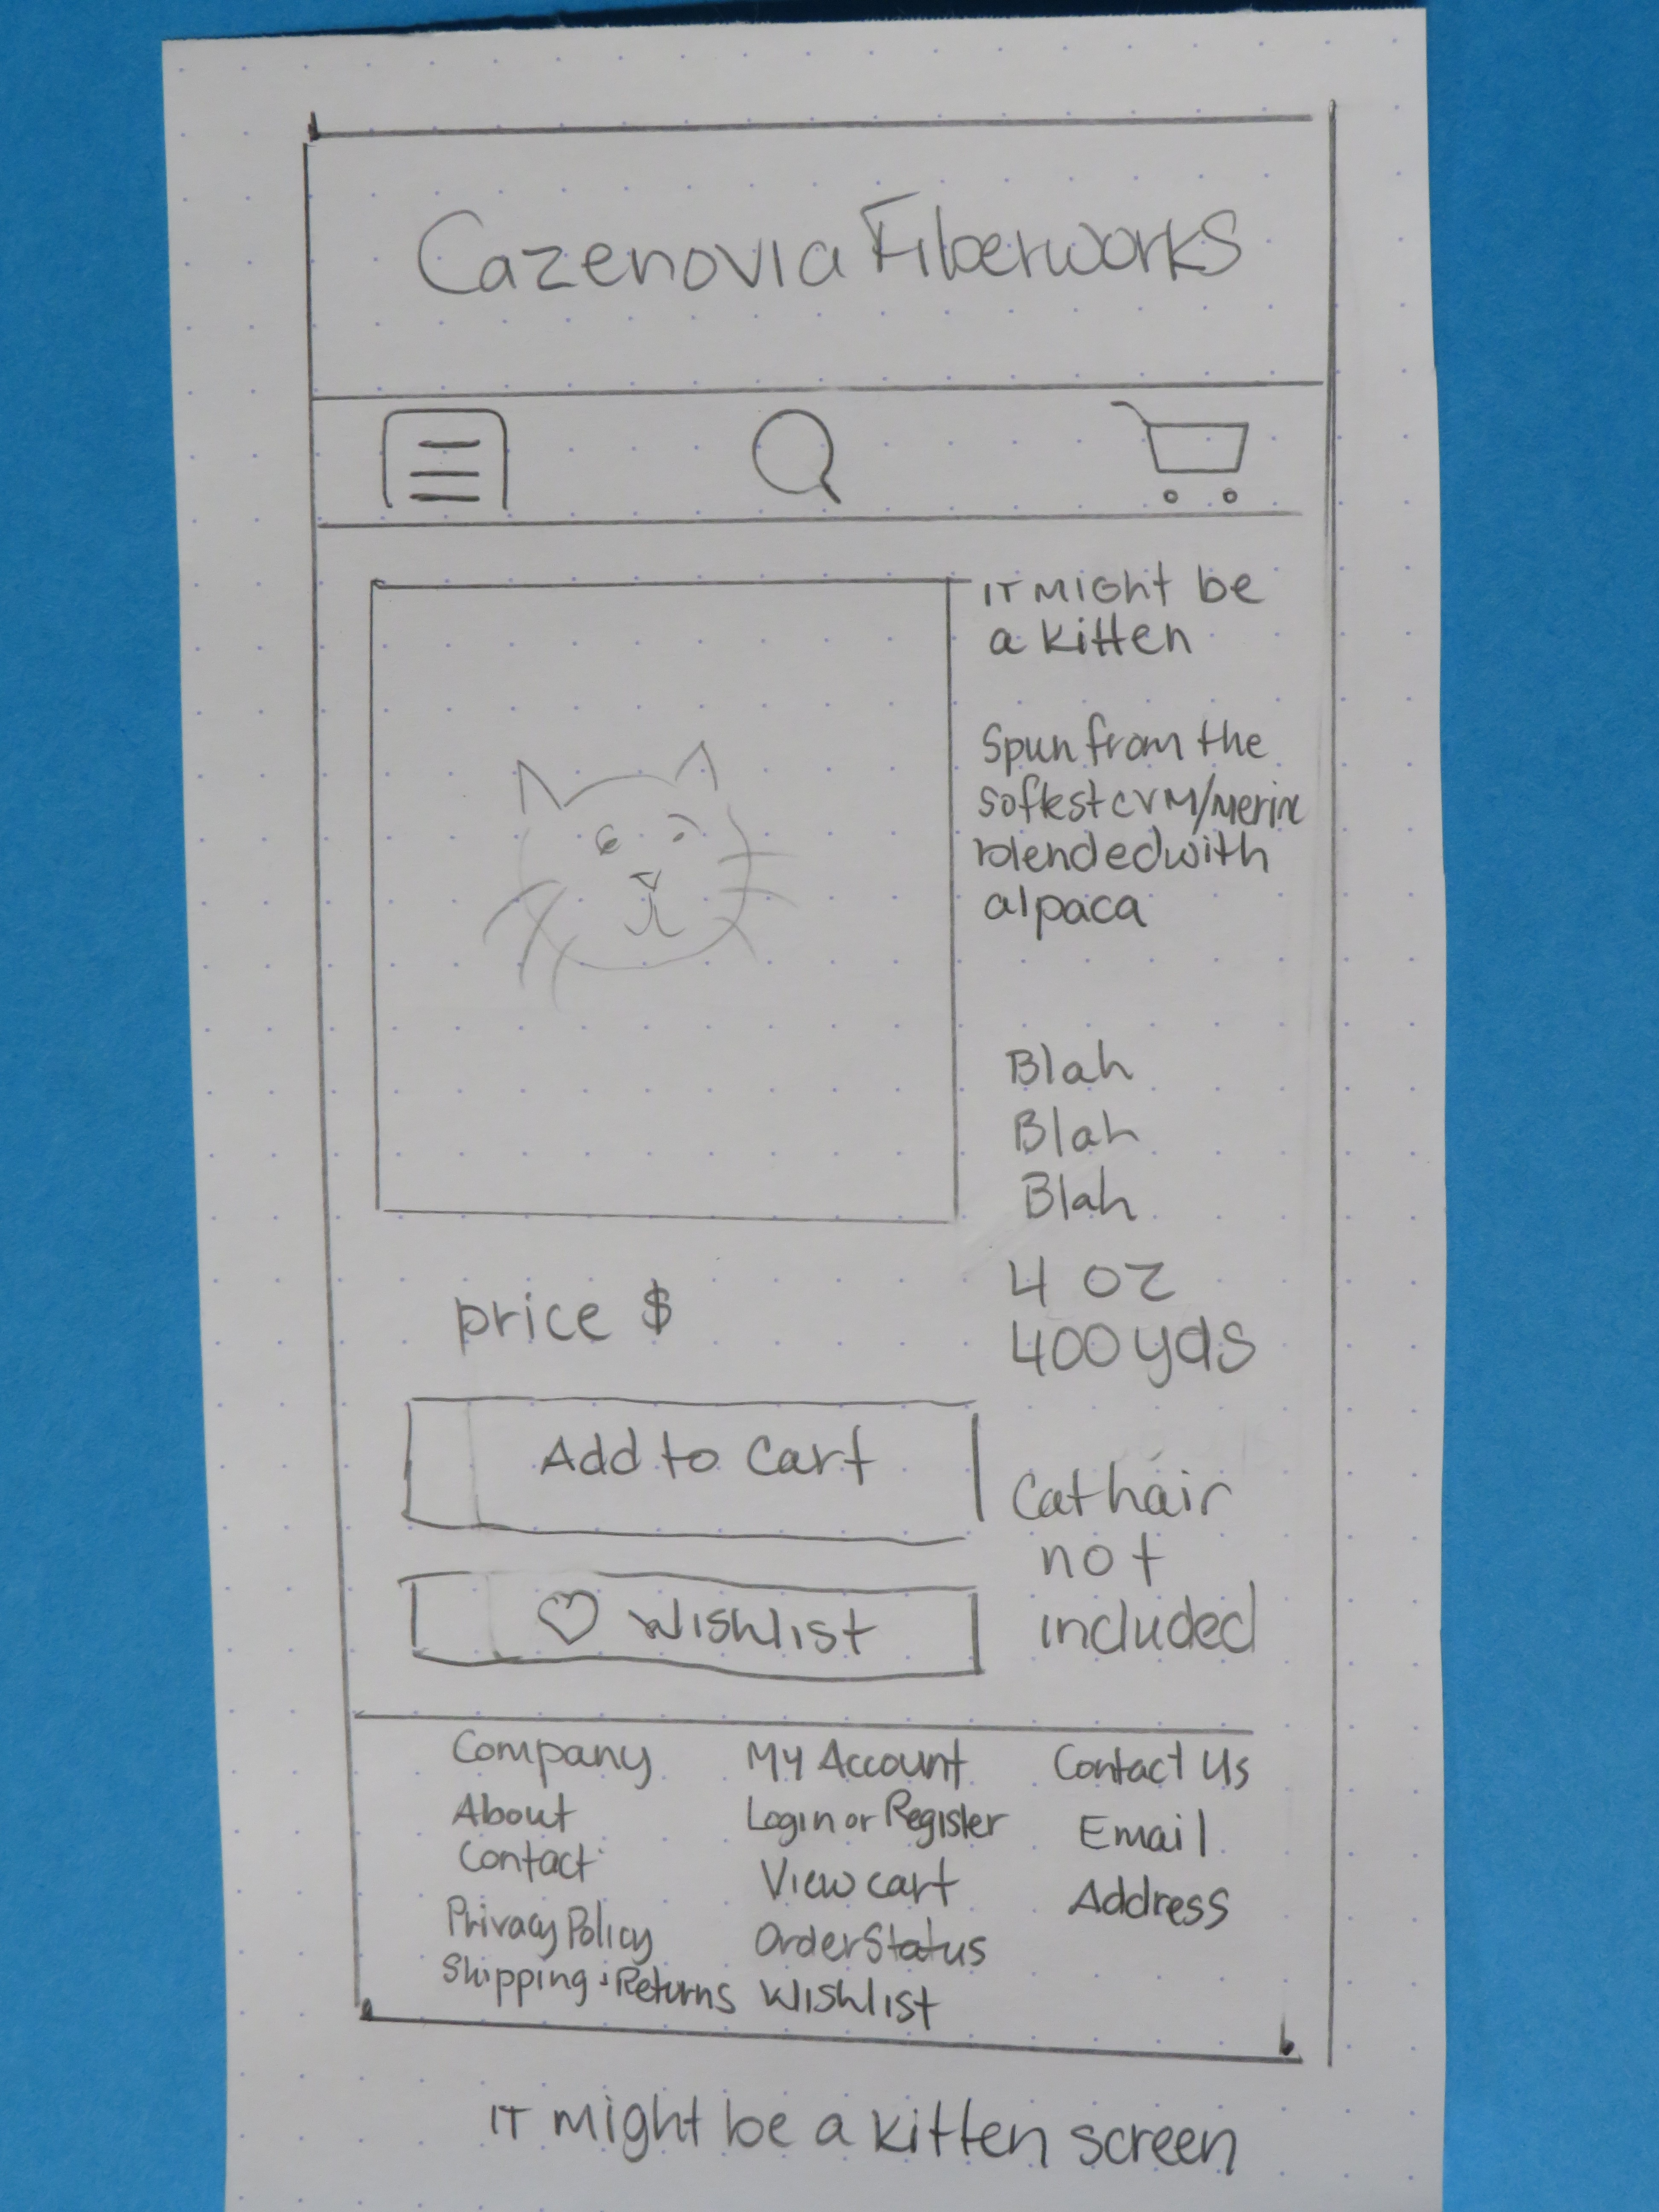 Cazenovia Fiberworks
IT MIGht be
a kitten
Spun from the
softest CVM/Merino
blended with
alpaca
Blah
Blah
Blah
4 oz
400 yds
price $
Add to Cart
Cat hair
not
included
Wishlist
Company
About
Contact
Privacy Policy
Shipping + Returns
My Account
Login or Register
View cart
Order Status
Wishlist
Contact Us
Email
Address
IT might be a kitten screen